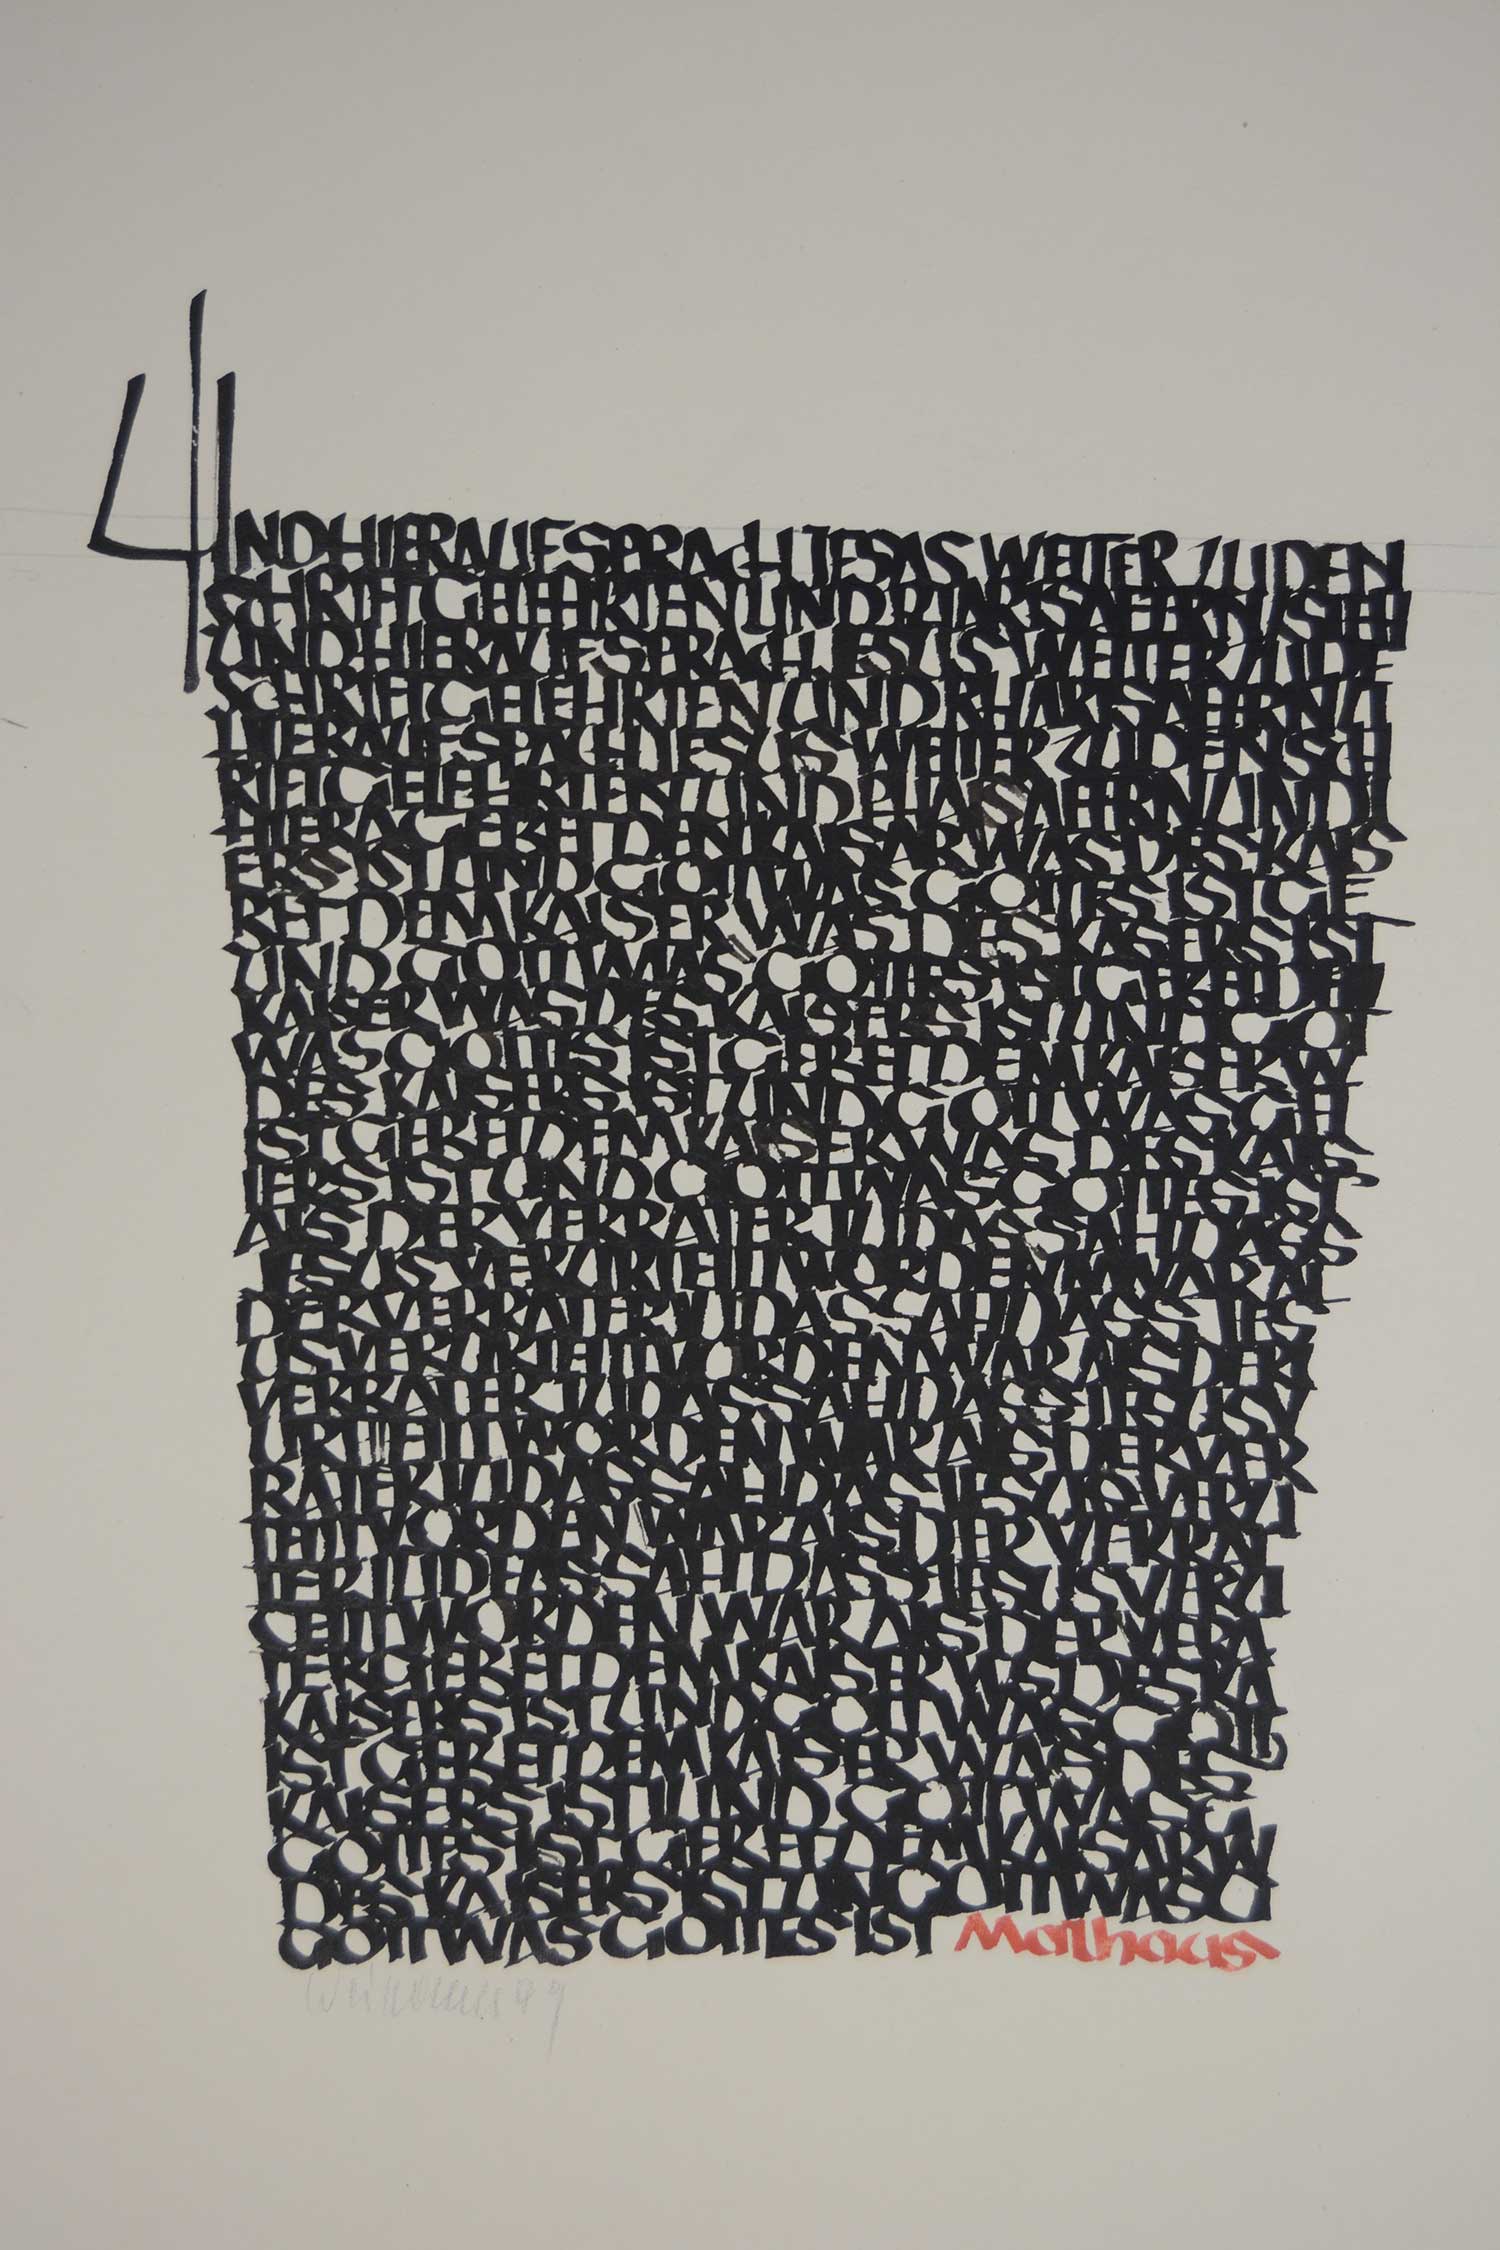 UND HIERAUF SPRACH JESAS WEITER ZU DEN
SCHRIFTGELEHRTEN UND
UND HIERAUF SPRACH JESUS WEITER ZU DE
SCHRIFTGELEHRTEN UND PHARISAEERN ZU
HIERAUF SPACH JESUS WEITER ZU DEN SCH
RIFTGELEHRTEN UND PHARISAEERN UND
HIERA GEBET DEN KAISAR WAS DES KAIS
ERS IST UND GOTT WAS GOTTES IST GE
BET DEM KAISER WAS DES KAISERS IST
UND GOTT WAS GOTTES IST GEBET DEM
KAISER WAS DES KAISERS IST UND GOT
WAS GOTTES IST GEBET DEM KAISER W
DES KAISERS IST UND GOTT WAS
IST GEBET DEM KAISER WAS DES KAIS
ERS IST UND GOTT WAS GOTTES IST
ALS DER VERRATER JUDAS SAH DASS
JESUS VERURTEILT WORDEN WAR AL
DER VERRATER JUDAS SAH DASS JES
US VERURTEILT WORDEN WAR ALS DER
VERRATER JUDAS SAH DASS JESUS V
URTEILT WORDEN WAR ALS DER VER
RATER JUDAS SAH DAS JESUS VERU
TEILT WORDEN WAR ALS DER VERRAT
TER JUDAS SAH DASS JESUS VERU
TEILT WORDEN WAR ALS DER VERRA
TER GEBET DEM KAISER WS DES KA
KAISERS IST UND GOTT WAS GOTT
IST GEBET DEM KAISER WAS DES
KAISERS IST UND GOTT WAS
GOTTES IST GEBET DEM KAISAR W
DES KAISERS IST UN GOTT WAS
GOTT WAS GOTTES IST Mathaus